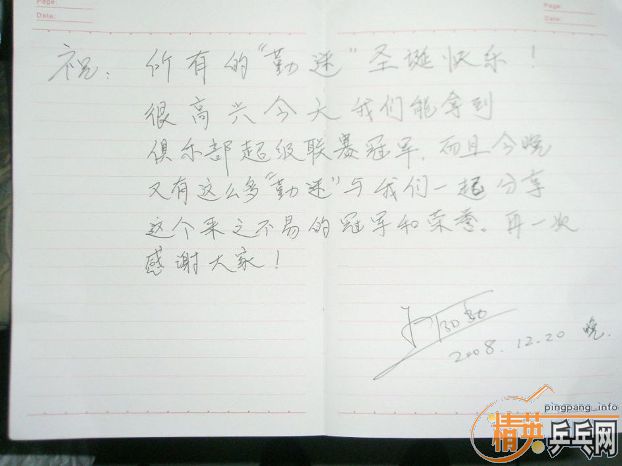 Page:
Date:
Page:
Date:
祝：所有的“勤迷”圣诞快乐！
很高兴今天我们能拿到
俱乐部超级联赛冠军，而且今晚
又有这么多“勤迷”与我们一起分享
这个来之不易的冠军和荣誉。再一次
感谢大家！
2008.12.20 晚.
pingpang_info
精英乒乓网